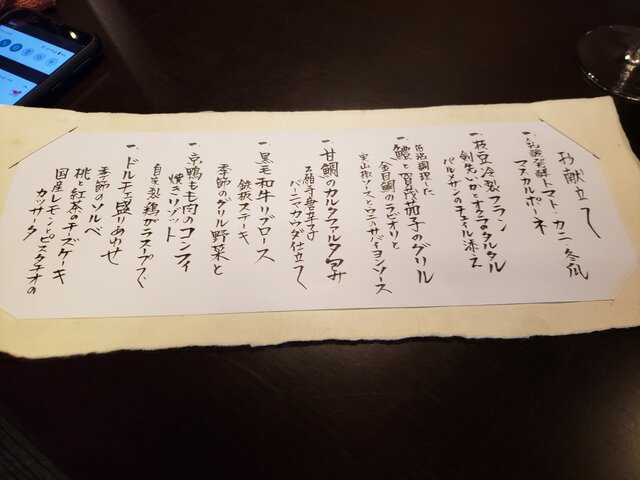 お献立て
一、乳酸発酵トマト・カニ・冬瓜
マスカルポーネ
一、枝豆冷製フラン
剣先いか・オクラのタルタル
パルメザンのチュイル添え
一、低温調理した
鱧と賀茂茄子のグリル
金目鯛のラビオリと
実山椒ソースとウニサバイヨンソース
一、甘鯛のカルタファタ包み
万願寺唐辛子
バーニャカウダ仕立て
一、黒毛和牛リブロース
鉄板ステーキ
季節のグリル野菜と
一、京鴨もも肉のコンフィ
焼きリゾット
自家製鶏がらスープで
一、ドルチェ盛りあわせ
季節のソルベ
桃と紅茶のチーズケーキ
国産レモンとピスタチオの
カッサータ